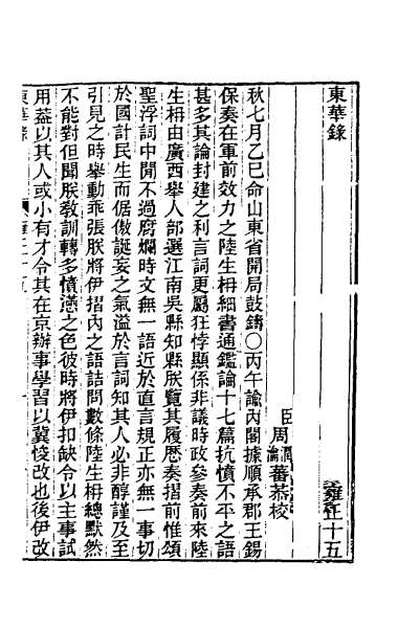 東華錄
雍正十五
臣周潤蕃恭校
瀹
秋七月乙巳命山東省開局鼓鑄○丙午諭內閣據順承郡王錫
保奏在軍前效力之陸生枏細書通鑑論十七篇抗憤不平之語
甚多其論封建之利言詞更屬狂悖顯係非議時政參奏前來陸
生枏由廣西舉人部選江南吳縣知縣朕覽其履歷奏摺前惟頌
聖浮詞中閒不過腐爛時文無一語近於直言規正亦無一事切
於國計民生而倨傲誕妄之氣溢於言詞知其人必非醇謹及至
引見之時舉動乖張朕將伊摺內之語詰問數條陸生枏總默然
不能對但聞朕教訓轉多憤懣之色彼時將伊扣缺令以主事試
用葢以其人或小有才令其在京辦事學習以冀悛改也後伊改
東華錄